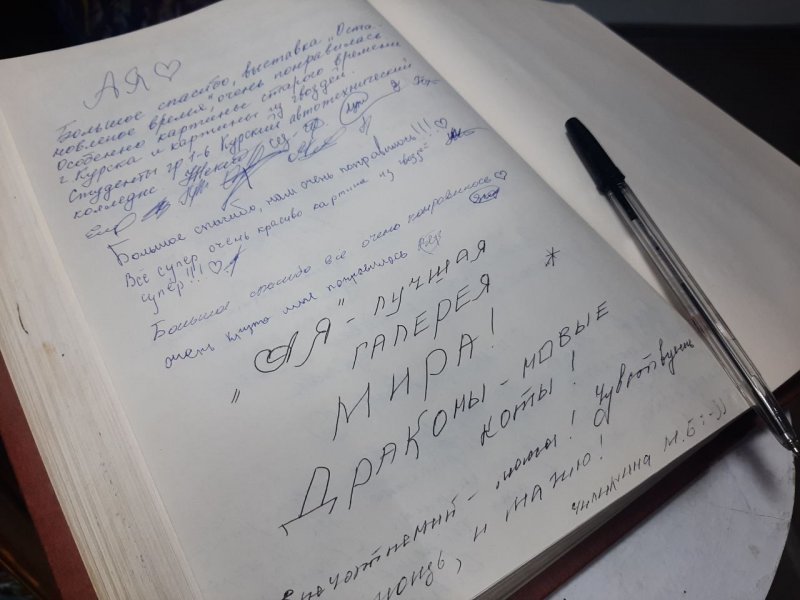 АЯ♡
Большое спасибо, выставка „Оста-
новленое время" очень понравилась.
Особенно картины старого времени
г. Курска и картины из гвоздей.
Студенты гр 1-6 Курский автотехнический
колледж.
Большое спасибо, нам очень понравилось!!!♡
Всё супер очень красиво картина из гвоздей
супер!!!♡
Большое спасибо всё очень понравилось♡
очень круто мне понравилось
„АЯ" - лучшая
галерея
МИРА!
Драконы - новые
коты!
Впечатлений - !
и магию!
М.Б :-))